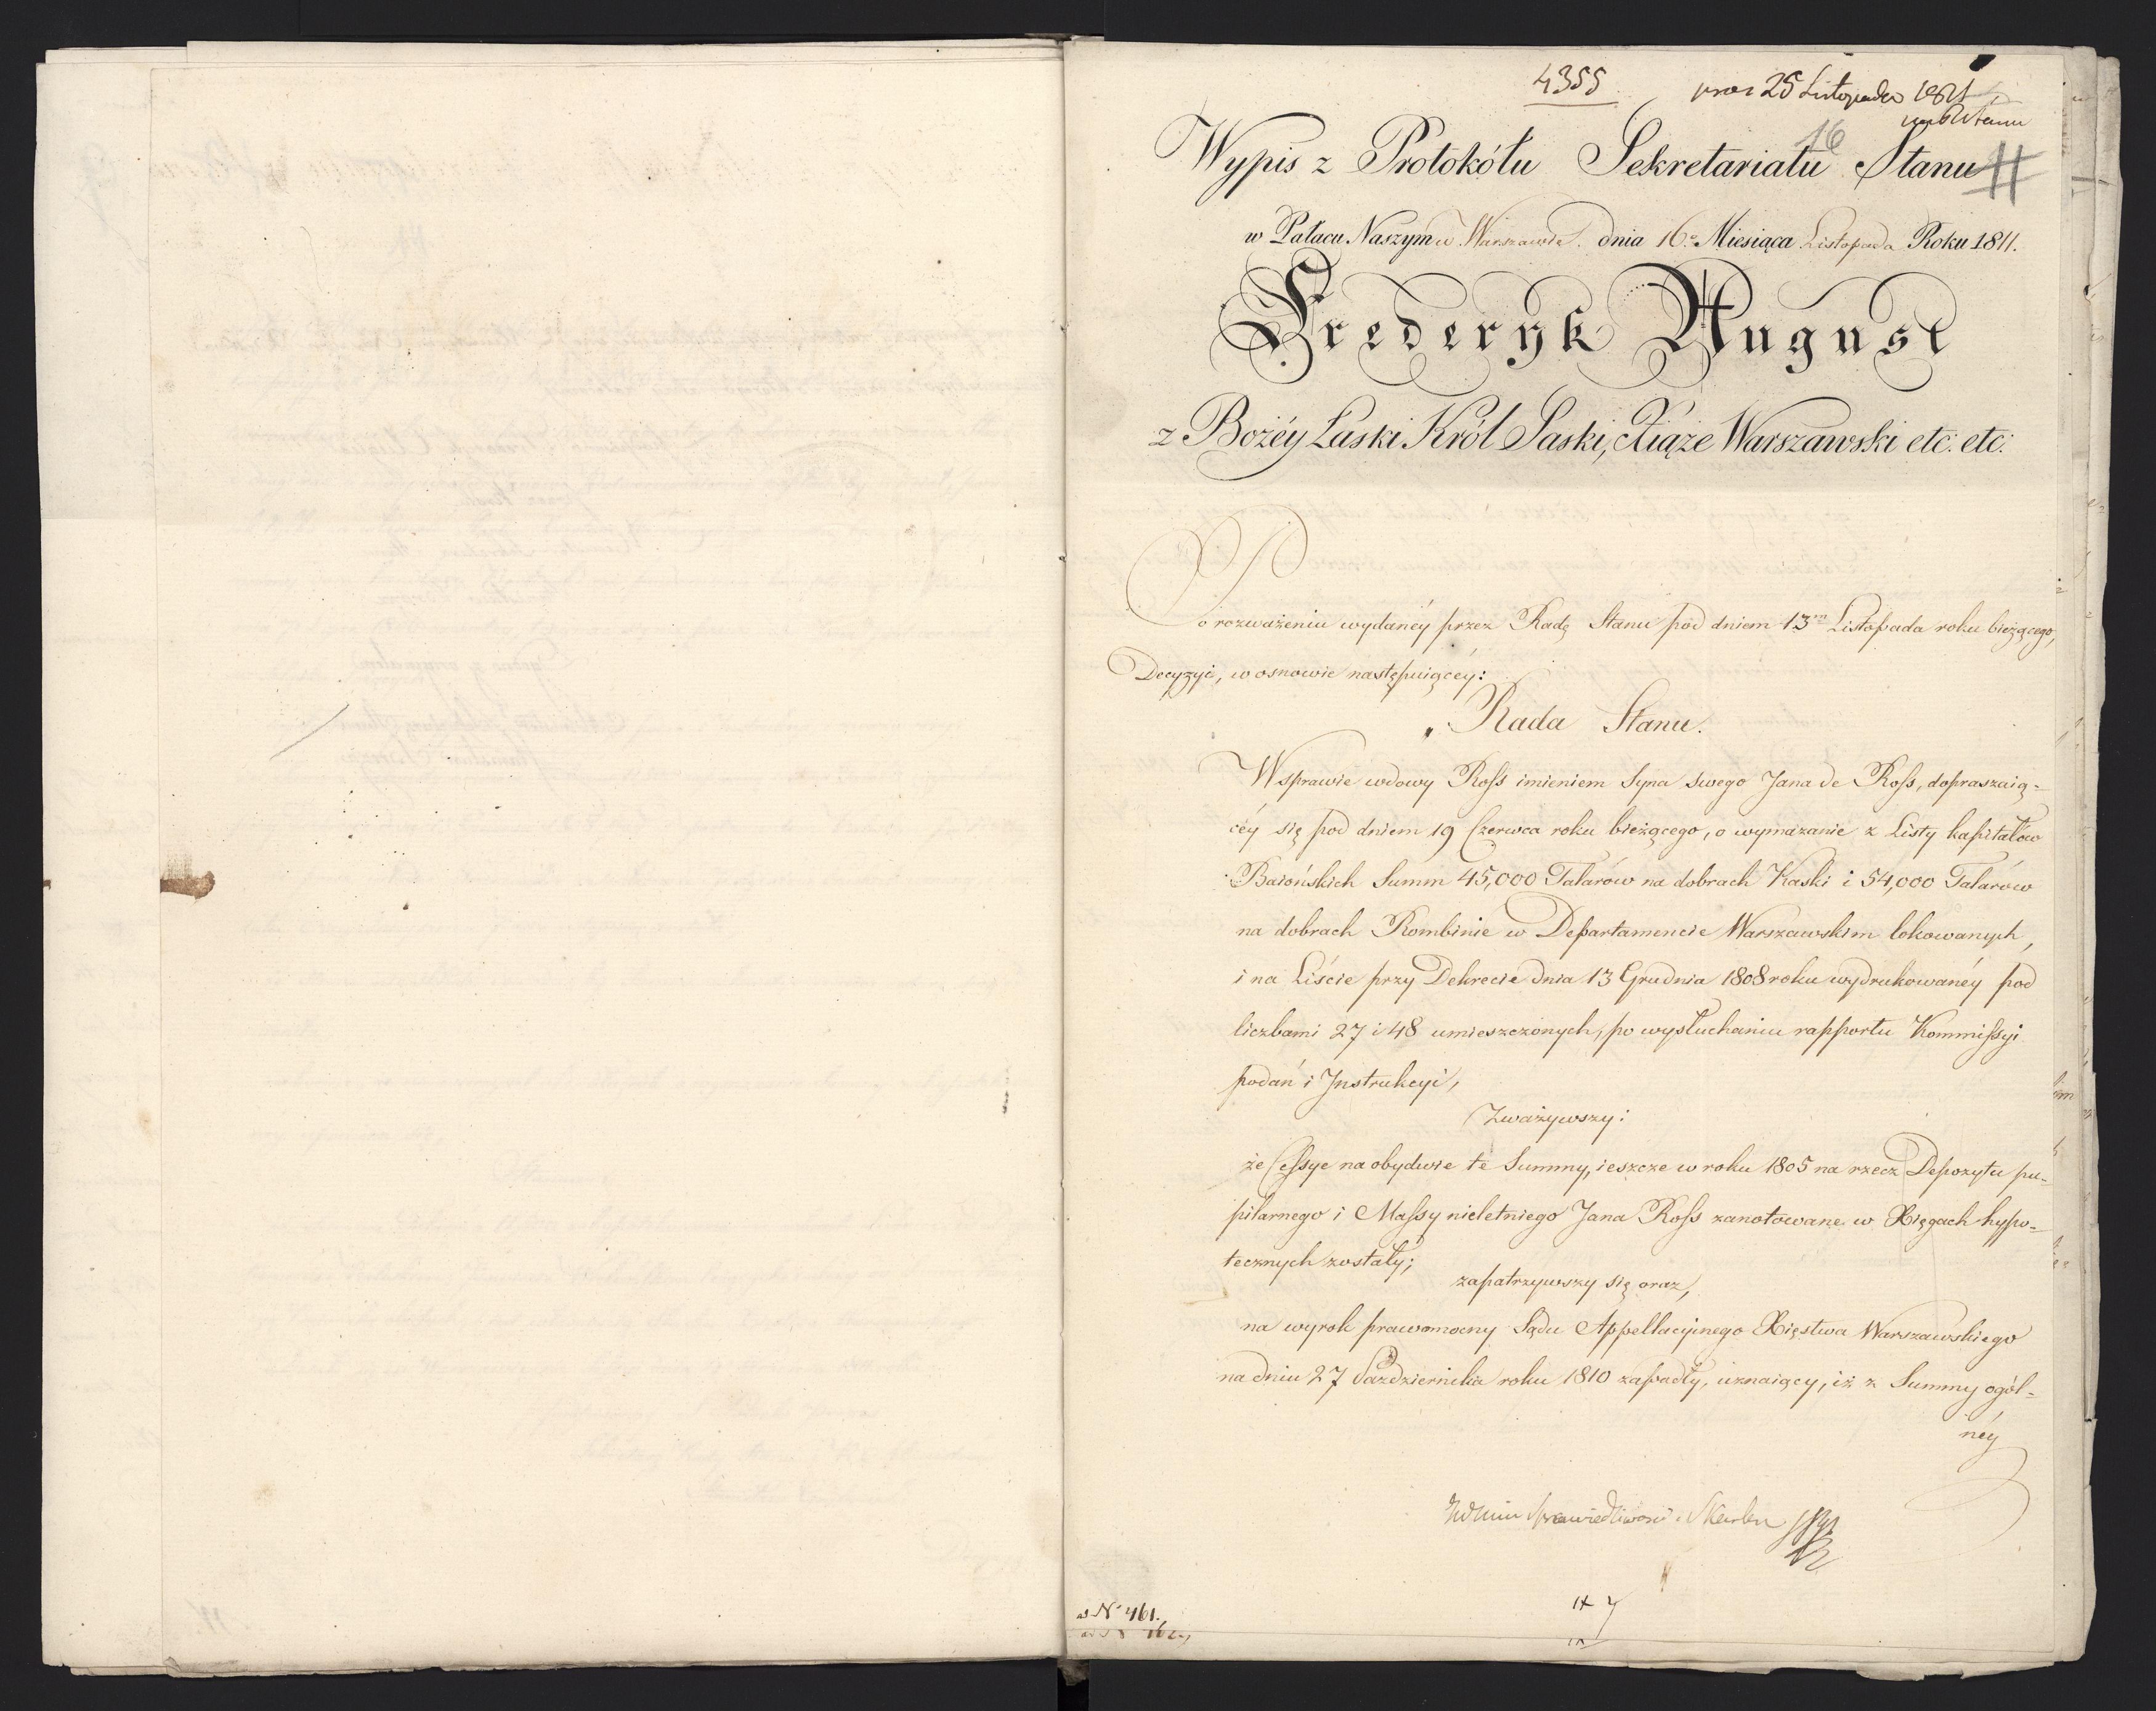 4355
25 Listopada 1811
16
Wypis z Protokółu Sekretariatu Stanu
w Pałacu Naszym w Warszawie. dnia 16º Miesiąca Listopada Roku 1811.
Frederyk August
z Bożéy Łaski Król Saski, Xiąże Warszawski etc: etc:
Po rozważeniu wydanéy przez Radę Stanu pod dniem 13m Listopada roku bieżącego,
Decyzyi, w osnowie następuiącéy:
„Rada Stanu.
W sprawie wdowy Ross imieniem Syna swego Jana de Ross, dopraszaią-
céy się pod dniem 19 Czerwca roku bieżącego, o wymazanie z Listy kapitałów
Baiońskich Summ 45,000 Talarów na dobrach Kaski i 54,000 Talarów
na dobrach Rombinie w Departamencie Warszawskim lokowanych,
i na Liście przy Dekrecie dnia 13 Grudnia 1808 roku wydrukowanéy pod
liczbami 27 i 48 umieszczonych, po wysłuchaniu rapportu Kommissyi
podań i Instrukcyi,
Zważywszy:
że Cessye na obydwie te Summy, ieszcze w roku 1805 na rzecz Depozytu pu-
pilarnego i Massy nieletniego Jana Ross zanotowane w Xięgach hypo-
tecznych zostały;
zapatrzywszy się oraz,
na wyrok prawomocny Sądu Appellacyinego Xięstwa Warszawskiego
na dniu 27 Października roku 1810 zapadły, uznaiący, iż z Summy ogól-
néy
Sprawiedliwości Skarbu
ad Nº 461.